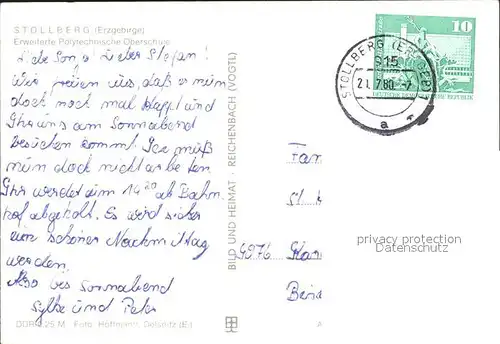 STOLLBERG (Erzgebirge)
Erweiterte Polytechnische Oberschule
Liebe Son, Lieber Stefan!
Wir freuen uns, daß es nun
doch noch mal klappt und
Ihr uns am Sonnabend
besuchen kommt. Ice muß
nun doch nicht arbeiten.
Ihr werdet um 14²⁰ ab Bahn-
hof abgeholt. Es wird sicher
ein schöner Nachmittag
werden.
Also bis Sonnabend
Sylke und Peter
DDR 0,25 M Foto: Hoffmann, Oelsnitz (E.)
BILD UND HEIMAT · REICHENBACH (VOGTL)
10
DEUTSCHE DEMOKRATISCHE REPUBLIK
STOLLBERG (ERZGEB)
915
21.7.80.-7
a
Fam
9076
privacy protection
Datenschutz